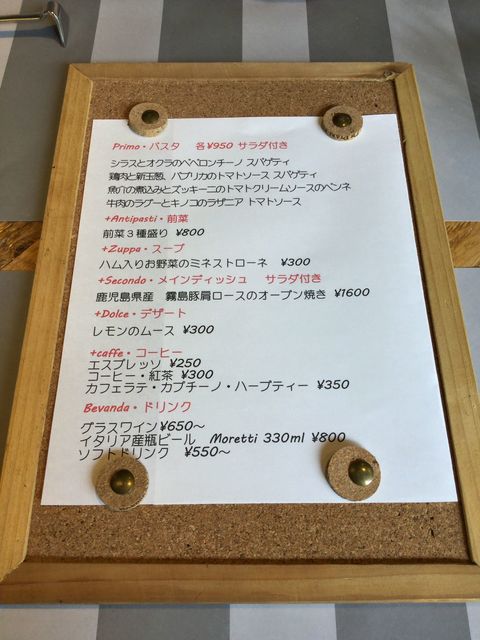 Primo・パスタ 各¥950 サラダ付き
シラスとオクラのペペロンチーノ スパゲティ
鶏肉と新玉葱、パプリカのトマトソース スパゲティ
魚介の煮込みとズッキーニのトマトクリームソースのペンネ
牛肉のラグーとキノコのラザニア トマトソース
+Antipasti・前菜
前菜3種盛り ¥800
+Zuppa・スープ
ハム入りお野菜のミネストローネ ¥300
+Secondo・メインディッシュ サラダ付き
鹿児島県産 霧島豚肩ロースのオーブン焼き ¥1600
+Dolce・デザート
レモンのムース ¥300
+caffe・コーヒー
エスプレッソ ¥250
コーヒー・紅茶 ¥300
カフェラテ・カプチーノ・ハーブティー ¥350
Bevanda・ドリンク
グラスワイン¥650～
イタリア産瓶ビール Moretti 330ml ¥800
ソフトドリンク ¥550～